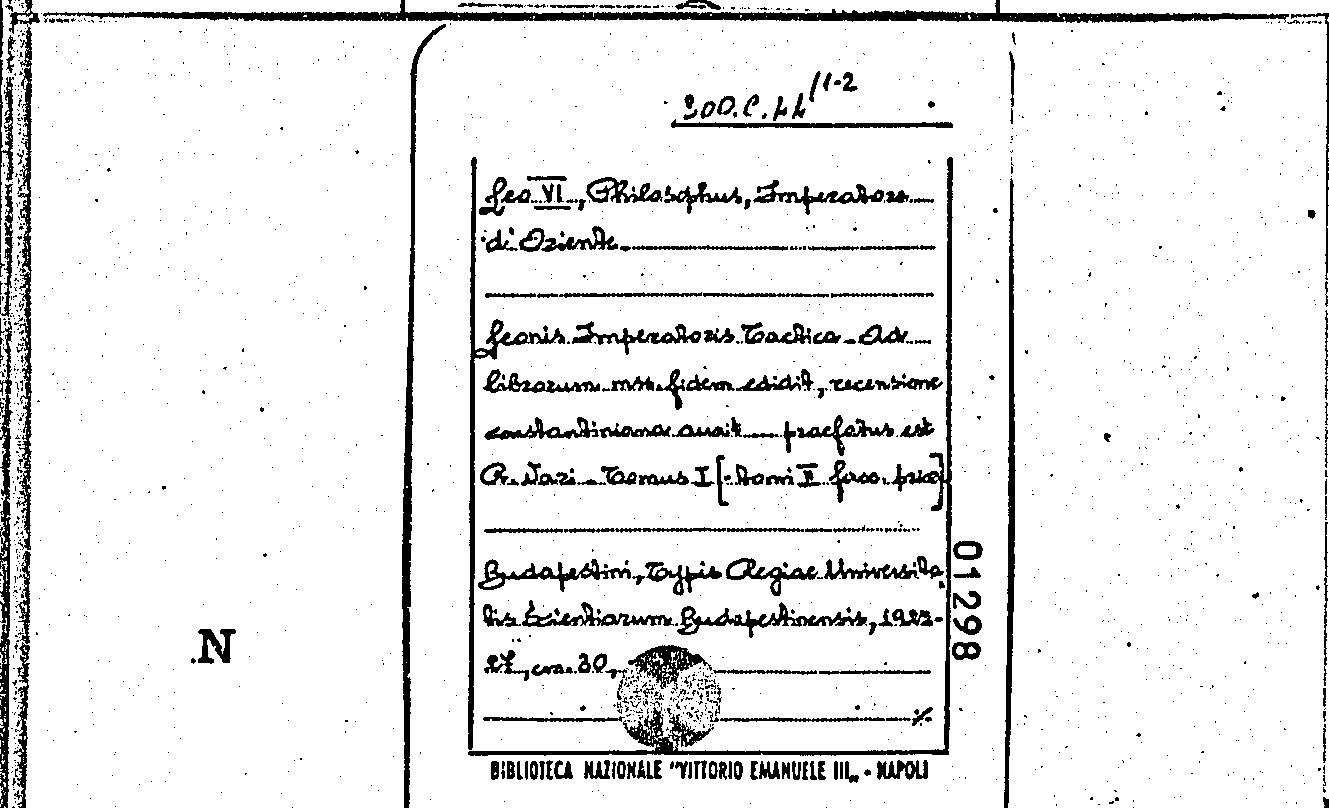 200.C.44/1-2
Leo VI, Philosophus, Imperatore
di Oriente.
Leonis Imperatoris Tactica. Ad
librorum mss. fidem edidit, recensione
constantiniana auxit praefatus est
R. Vari. Tomus I [-tomi II fasc. prior]
Budapestini, Typis Regiae Universita
tis Scientiarum Budapestinensis, 1917-
27, cm. 30,
./.
01298
N
BIBLIOTECA NAZIONALE "VITTORIO EMANUELE III„ - NAPOLI